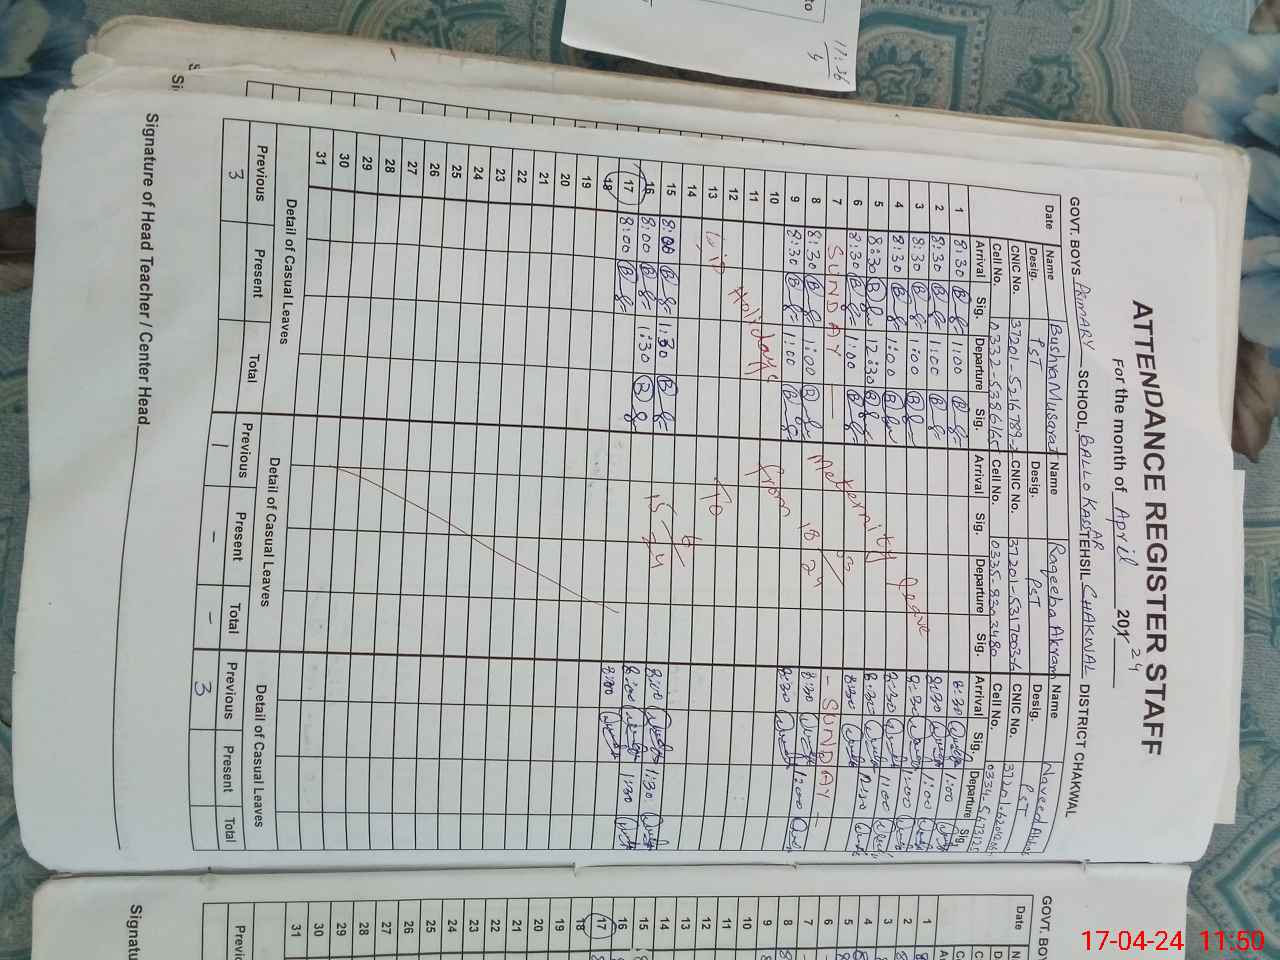 ATTENDANCE REGISTER STAFF
For the month of April 2024
GOVT. BOYS PRIMARY SCHOOL, BALLO KASSAR TEHSIL CHAKWAL DISTRICT CHAKWAL
Name Bushra Musarat Name Raqeeba Akram Name Naveed
Date Desig. PST Desig. PST Desig. PST
CNIC No. CNIC No. 37201-5317003-6 CNIC No.
Cell No. 0332-5386165 Cell No. 0335-8303480 Cell No.
Arrival Sig. Departure Sig. Arrival Sig. Departure Sig. Arrival Sig. Departure Sig.
1 8:30 1:00 8:30 1:00
2 8:30 1:00 8:30 1:00
3 8:30 1:00 8:30 1:00
4 8:30 1:00 8:30 1:00
5 8:30 12:30 8:30 12:30
6 8:30 1:00 8:30
7 SUNDAY - SUNDAY -
8 8:30 1:00 8:30 1:00
9 8:30 1:00 8:30
10
11
12
13
14
Holidays
Meternity leave
from 18/3/24
To
15/6/24
15 8:00 1:30 8:00 1:30
16 8:00 1:30 8:00 1:30
17 8:00 8:00
18
19
20
21
22
23
24
25
26
27
28
29
30
31
Detail of Casual Leaves Detail of Casual Leaves Detail of Casual Leaves
Previous Present Total Previous Present Total Previous Present Total
3 1 - - 3
Signature of Head Teacher / Center Head
GOVT. BOY
Date
1
2
3
4
5
6
7
8
9
10
11
12
13
14
15
16
17
18
19
20
21
22
23
24
25
26
27
28
29
30
31
Previ
Signatu
17:36
17-04-24 11:50